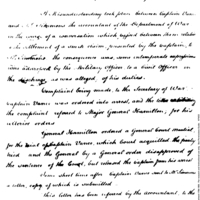 A Misunderstanding took place between Captain Vance
and Mr Simmons the accountant of the Department of War
in the course of a conversation which respect between them relative
to the settlement of a small claim presented by the Captain, to
the accountant the consequence was, some intemperate expressions
were addressed by the Military officer to a Civil officer in
the discharge, as was alleged, of his duties.
Complaint being made, to the Secretary of War
Captain Vance was ordered into arrest, and the
the complaint referred to Major General Hamilton, for his
ulterior orders
General Hamilton ordered a General Court Martial
for the trial of Captain Vance, which Court acquitted the party
tried and the General by a General order disapproved of
the sentence of the Court, but released the Captain from his arrest
Some short time after Captain Vance sent to Mr Simmons
a letter, copy of which is submitted
This letter has been referred by the accountant to the